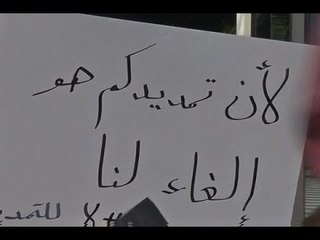 لأن تمديدكم هو
إلغاء لنا
لا للتمد